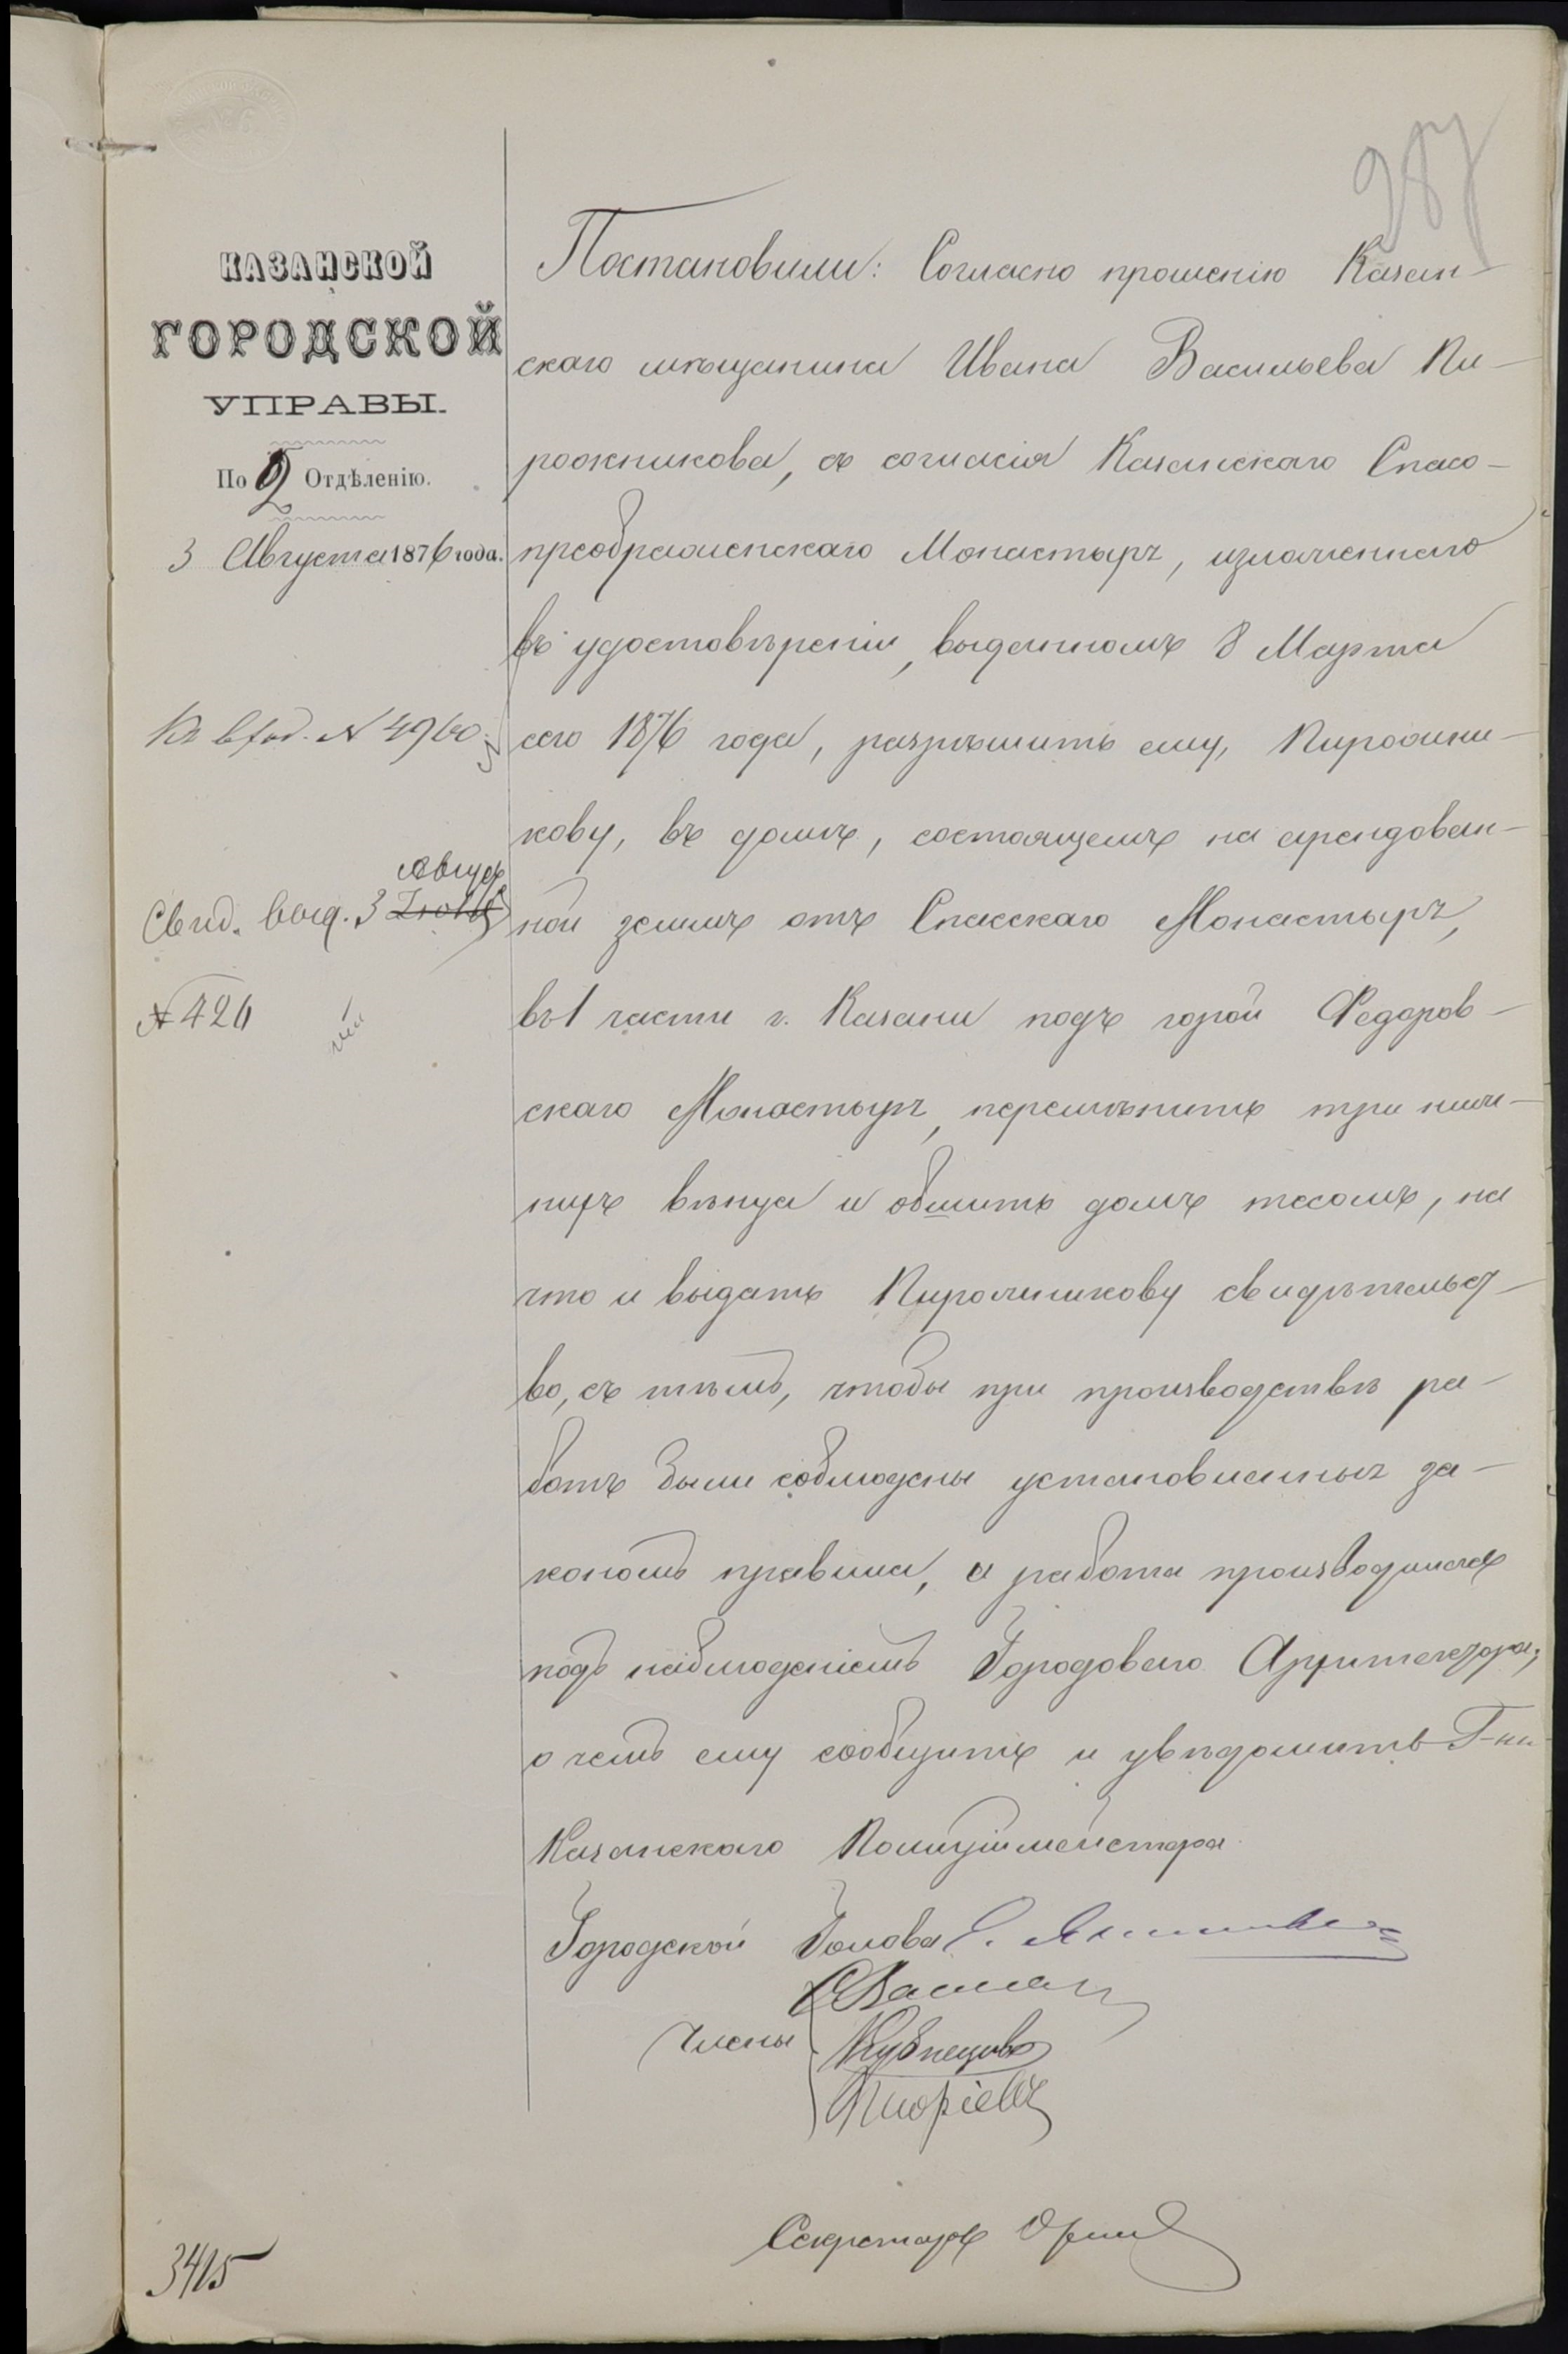 287
КАЗАНСКОЙ
ГОРОДСКОЙ
УПРАВЫ.
По 2 Отдѣленію.
3 Августа 1876 года.
Къ вход. № 4960
Август
Свид. выд. 3 Іюля
№ 426
Постановили: Согласно прошенію Казан-
скаго мѣщанина Ивана Васильева Пи-
рожникова, съ согласія Казанскаго Спасо-
преображенскаго Монастыря, изложеннаго
въ удостовѣреніи, выданномъ 8 Марта
сего 1876 года, разрѣшить ему, Пирожни-
кову, въ домѣ, состоящемъ на арендован-
ной землѣ отъ Спасскаго Монастыря,
въ 1 части г. Казани подъ горой Федоров-
скаго Монастыря, перемѣнить три ниж-
нихъ вѣнца и обшить домъ тесомъ, на
что и выдать Пирожникову свидѣтельст-
во, съ тѣмъ, чтобы при производствѣ ра-
ботъ были соблюдены установленныя за-
кономъ правила, а работа производилась
подъ наблюденіемъ Городового Архитектора;
о чемъ ему сообщить и увѣдомить Г-на
Казанскаго Полицiймейстера.
Городской Голова
Члены
Кузнецовъ
Секретарь
3415